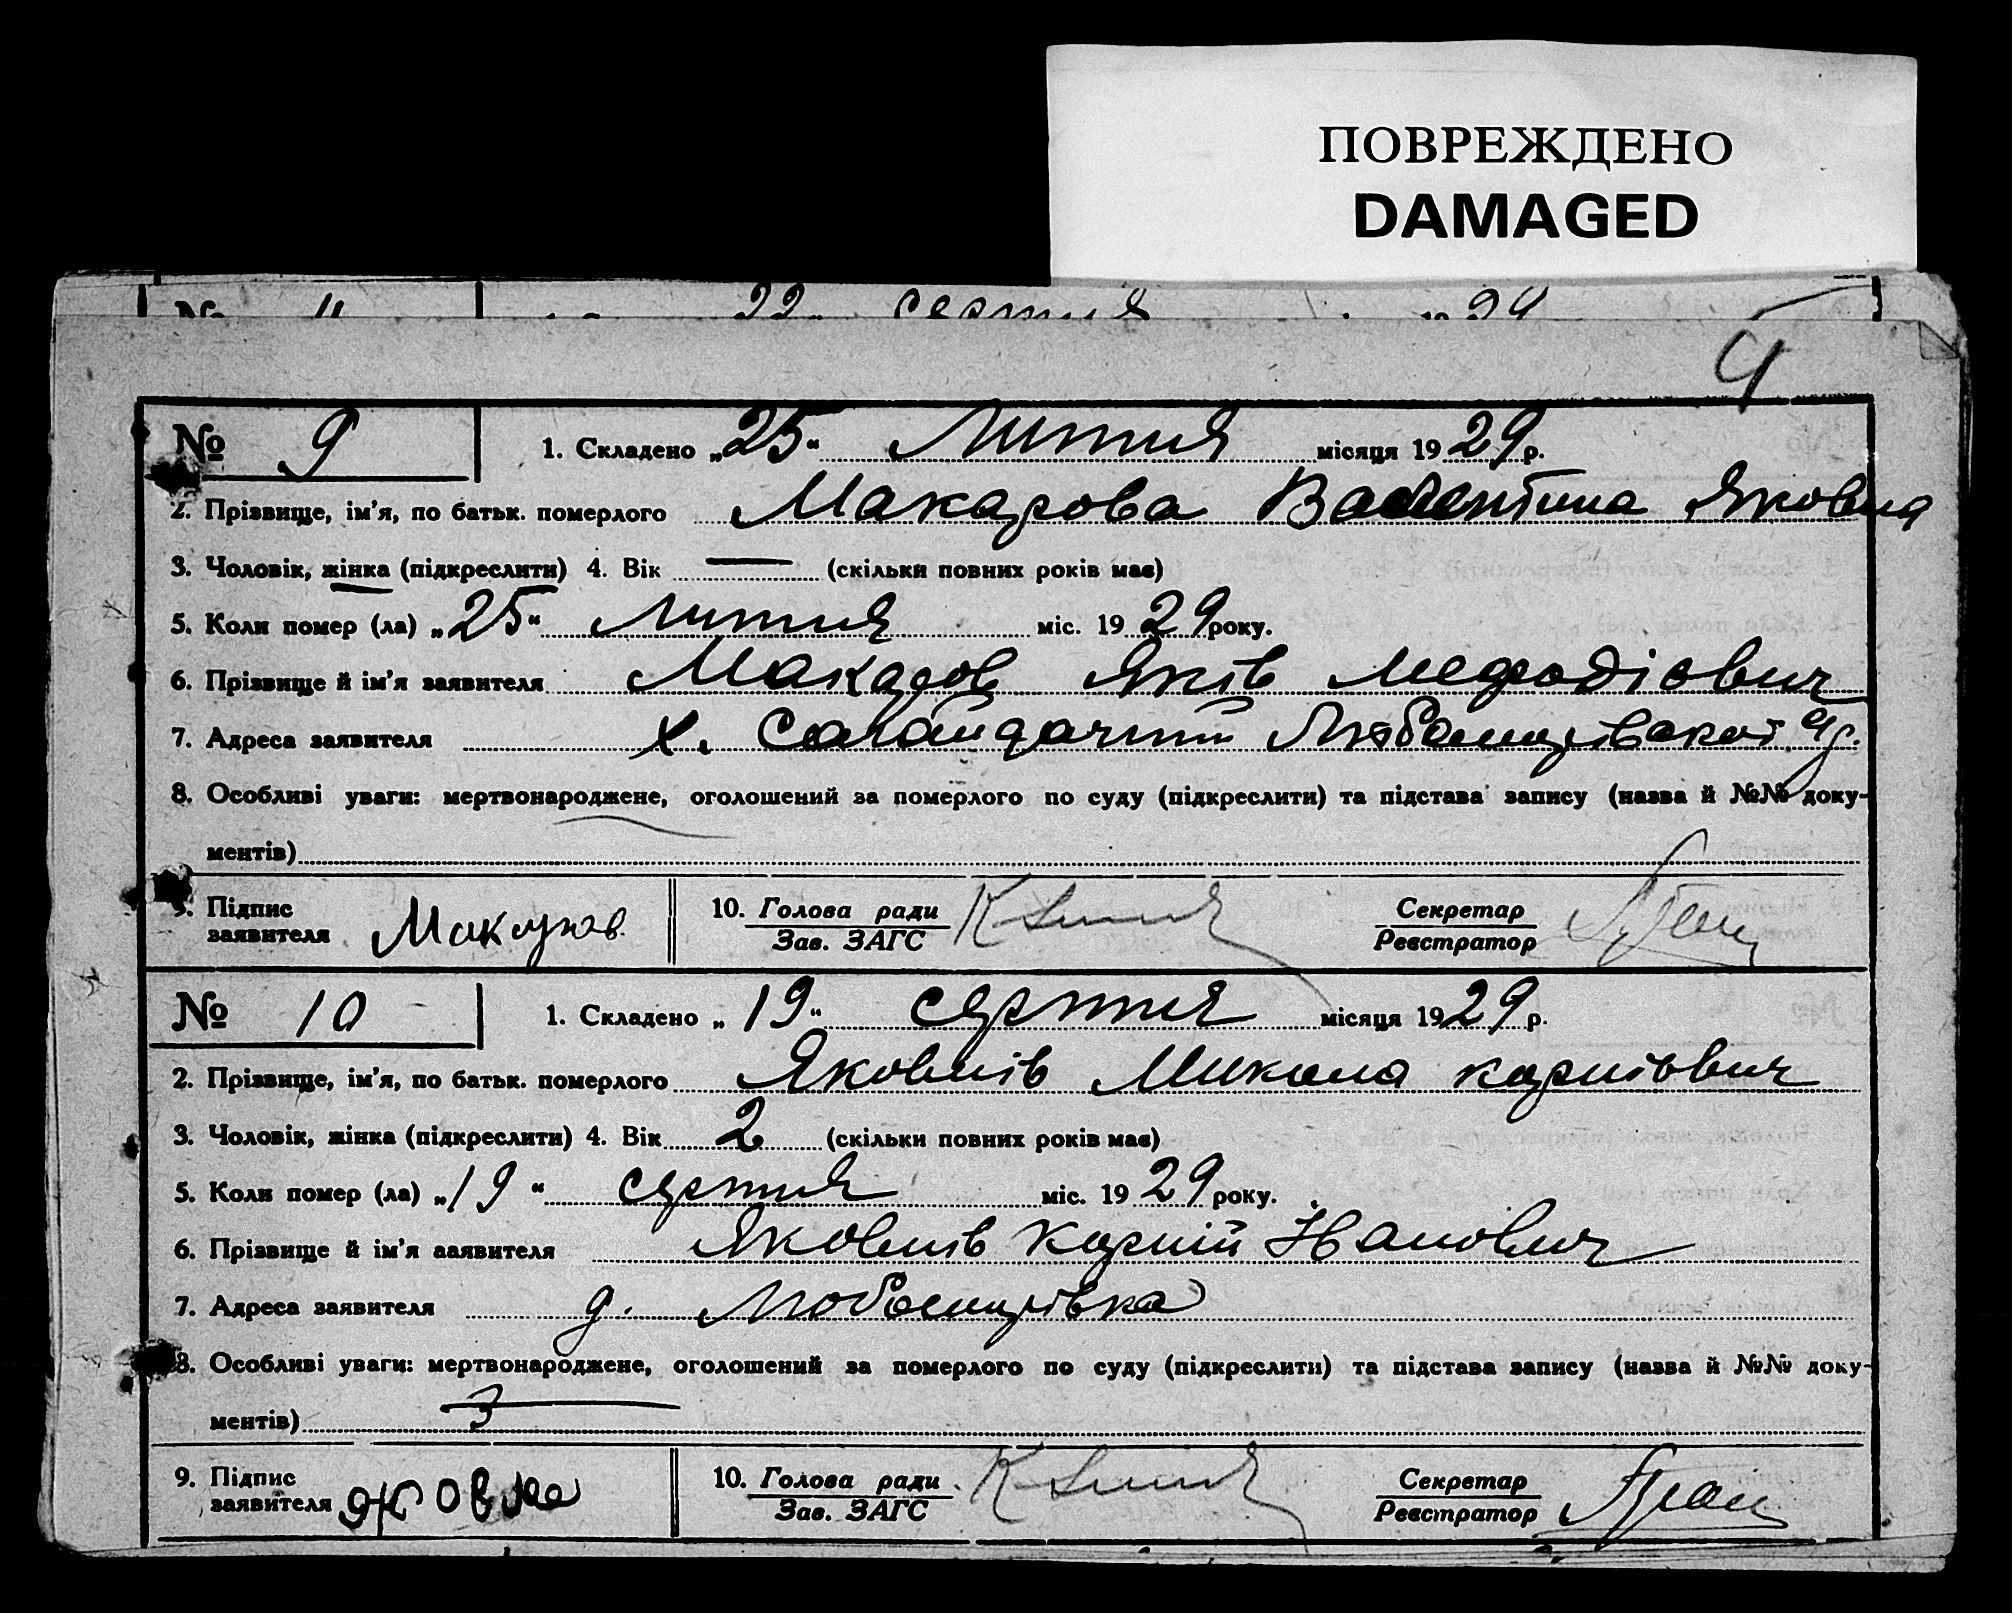 ПОВРЕЖДЕНО
DAMAGED
№ 11 22 серпня 1929
4
№ 9 1. Складено „25“ Лютня місяця 1929 р.
2. Прізвище, ім'я, по батьк. померлого Макарова Валентина Яковна
3. Чоловік, жінка (підкреслити) 4. Вік — (скільки повних років має)
5. Коли помер (ла) „25“ Лютня міс. 1929 року.
6. Прізвище й ім'я заявителя Макаров Яків Мефодієвич
7. Адреса заявителя х. Сагайдачний Любомирівської
8. Особливі уваги: мертвонароджене, оголошений за померлого по суду (підкреслити) та підстава запису (назва й №№ доку-
ментів)
9. Підпис заявителя Макаров 10. Голова ради Секретар
Зав. ЗАГС Реєстратор
№ 10 1. Складено „19“ серпня місяця 1929 р.
2. Прізвище, ім'я, по батьк. померлого Яковлів Микола Карпович
3. Чоловік, жінка (підкреслити) 4. Вік 2 (скільки повних років має)
5. Коли помер (ла) „19“ серпня міс. 1929 року.
6. Прізвище й ім'я заявителя Яковлів Іванович
7. Адреса заявителя д. Любомирівка
8. Особливі уваги: мертвонароджене, оголошений за померлого по суду (підкреслити) та підстава запису (назва й №№ доку-
ментів) З
9. Підпис заявителя 10. Голова ради Секретар
Зав. ЗАГС Реєстратор